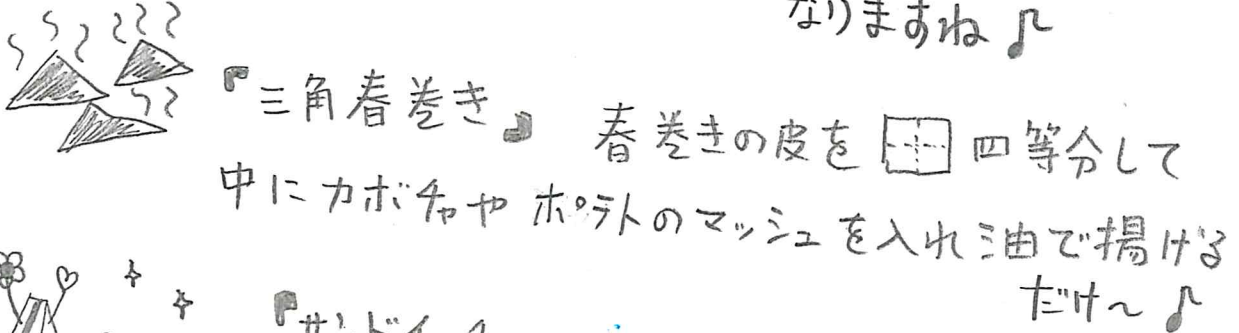 なりますね♪
『三角春巻き』 春巻きの皮を 四等分して
中にカボチャやポテトのマッシュを入れ油で揚げる
だけ〜♪